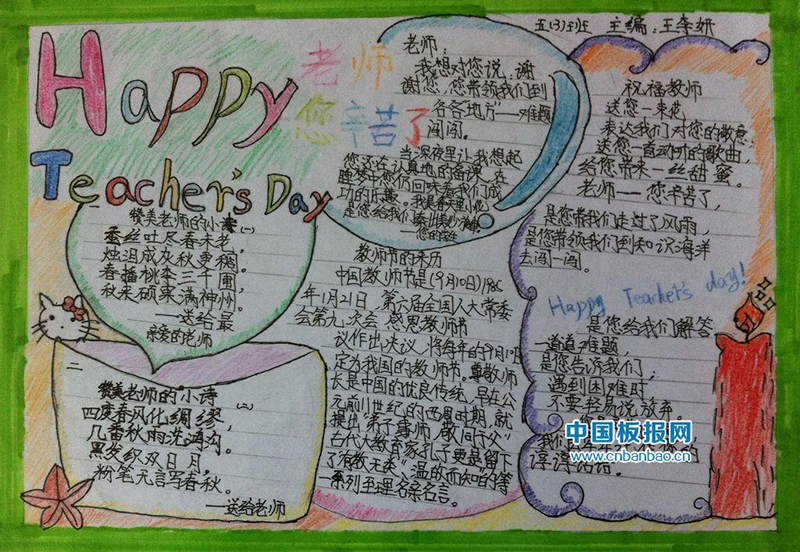 Happy
Teacher's Day
老师
您辛苦了
五(3)班 主编:王李妍
老师:
我想对您说:谢
谢您,您带领我们到
各各地方——难题
闯闯。
当深夜里让我想起
您还在认真地的备课,在
睡梦中您仍回味着我们成
功的乐趣。
是您给我们
祝福教师
送您一束花
表达我们对您的敬意;
送您一首动听的歌曲,
给您带来一丝甜蜜。
老师——您辛苦了,
是您带我们走过了风雨,
是您带领我们到知识海洋
去闯一闯。
Happy Teacher's day!
是您给我们解答
一道道难题,
是您告诉我们,
遇到困难时
不要轻易说放弃。
谆谆话语。
赞美老师的小诗(一)
蚕丝吐尽春未老,
烛泪成文秋更稠。
春播桃李三千圃,
秋来硕果满神州。
——送给最
亲爱的老师
二
赞美老师的小诗(二)
四度春风化绸缪,
几番秋雨洗鸿沟。
黑发积双日月,
粉笔无言写春秋。
——送给老师
教师节的来历
中国教师节是(9月10日)1985
年1月21日,第六届全国人大常委
会第九次会 恩思教师节
议作出决议,将每年的9月10日
定为我国的教师节。尊敬师
长是中国的优良传统,早在公
元前11世纪的西周时期,就
提出"弟子事师,敬同于父"
古代大教育家孔子更是留下
了"有教无类""温故而知新"等
一系列至理名亲名言。
中国板报网
www.cnbanbao.cn